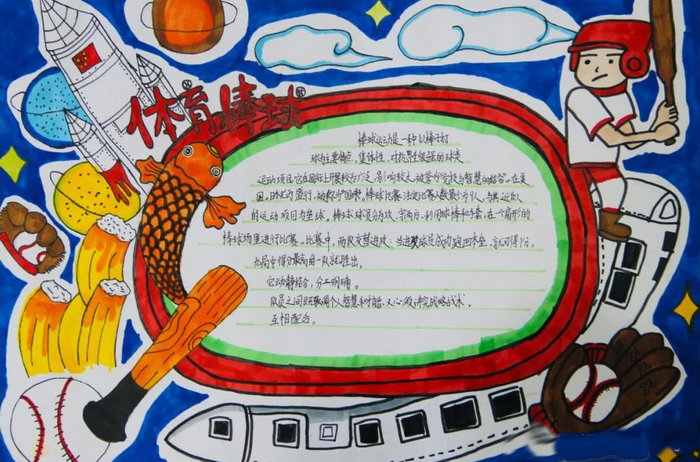 体育棒球
棒球运动是一种以棒子打
球为主要特征，集体性、对抗性很强的球类
运动项目。它在国际上开展较为广泛，影响较大，被誉为"竞技与智慧的结合"。在美
国、日本尤为盛行，被称为"国球"。棒球比赛法定比赛人数最少为9人，与其近似
的运动项目为垒球。棒球球员分为攻、守两方，利用球棒和手套，在一个扇形的
棒球场里进行比赛。比赛中，两队交替进攻：当进攻球员成功跑回本垒，就可得1分。
九局中得分最高的一队就胜出。
它动静结合，分工明确。
队员之间既强调个人智慧和才能，又必须讲究战略战术，
互相配合。